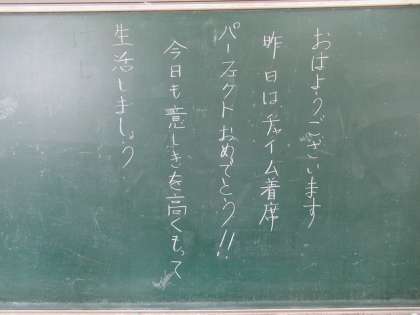 おはようございます
昨日はチャイム着席
パーフェクトおめでとう!!
今日も意しきを高くもって
生活しましょう